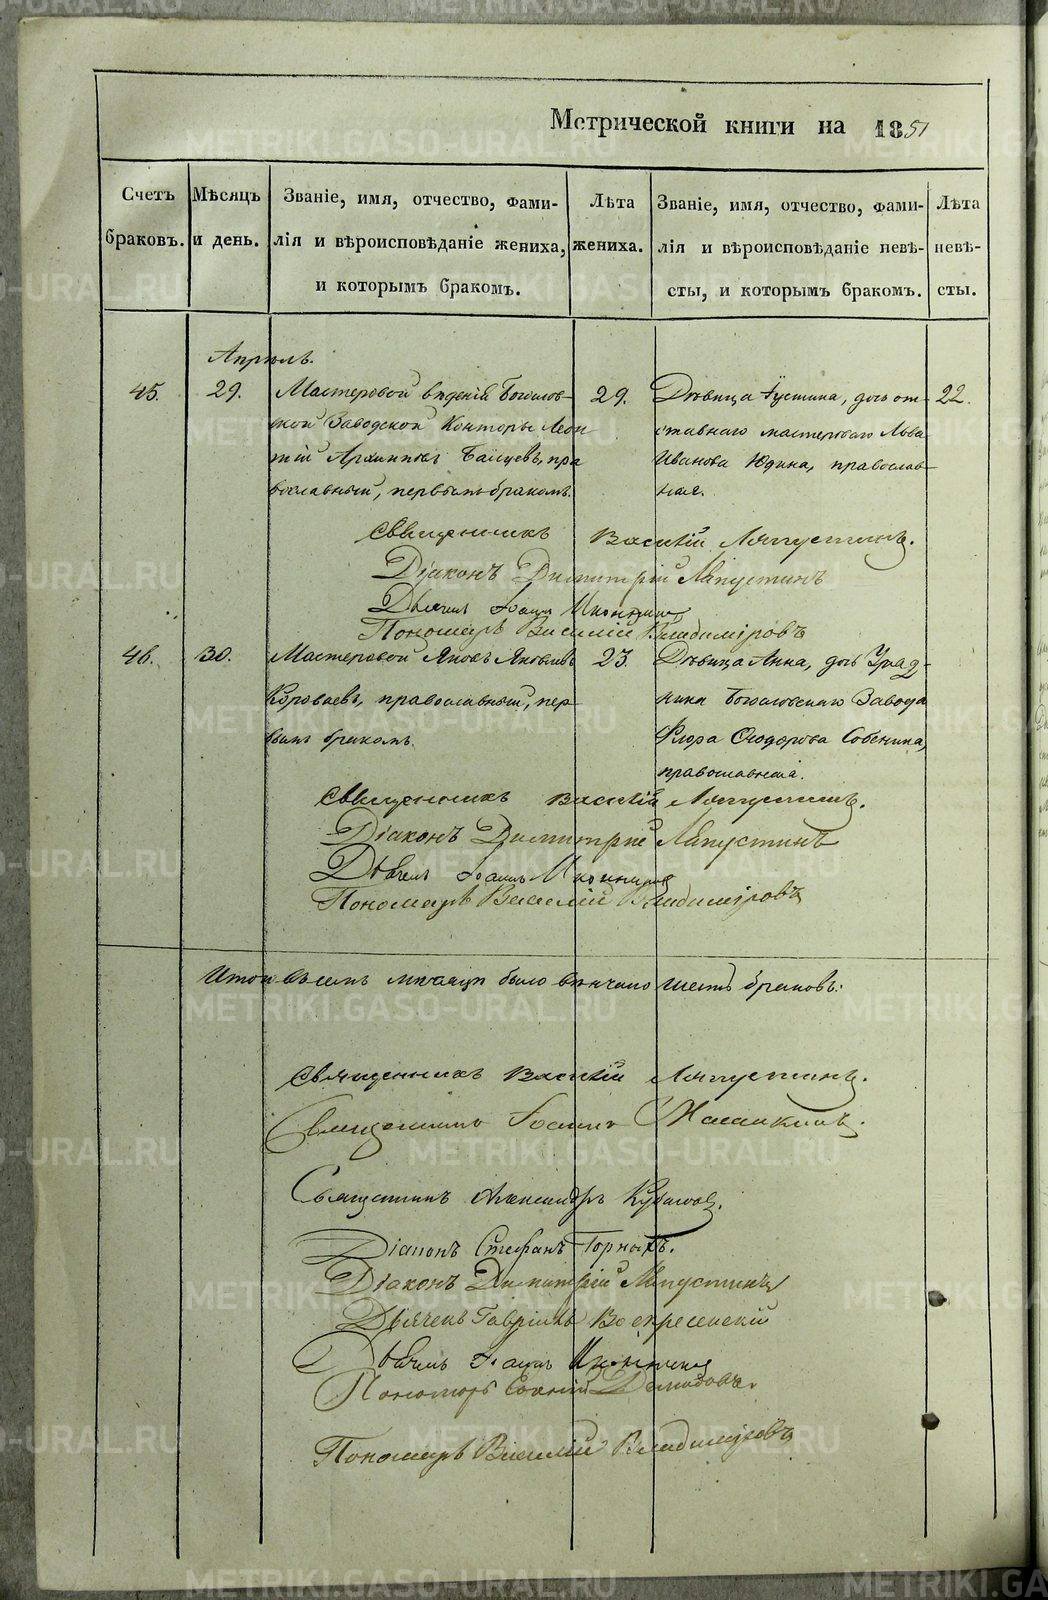 Метрической книги на 1851
Счетъ браковъ.
Мѣсяцъ и день.
Званіе, имя, отчество, фами-
лія и вѣроисповѣданіе жениха,
и которымъ бракомъ.
Лѣта жениха.
Званіе, имя, отчество, фами-
лія и вѣроисповѣданіе невѣ-
сты, и которымъ бракомъ.
Лѣта невѣ-
сты.
Апрѣль.
45. 29.
Мастеровой вѣденія Богослов-
ской Заводской Конторы Леон
тій Архиповъ, пра
вославный, первымъ бракомъ.
29.
Дѣвица Іустина, дочь от
ставнаго мастероваго Льва
Иванова Юдина, православ
ная.
22.
Священникъ Василій Ляпустинъ.
Діаконъ Димитрій Ляпустинъ
Дьячекъ Іоаннъ
Пономарь Василій Владиміровъ
46. 30.
Мастеровой Яковъ Яковлевъ
Короваевъ, православный, пер
вымъ бракомъ.
23.
Дѣвица Анна, дочь Уряд-
ника Богословскаго Завода
Флора Ѳеодорова Собенина,
православная.
Священникъ Василій Ляпустинъ.
Діаконъ Димитрій Ляпустинъ
Дьячекъ Іоаннъ
Пономарь Василій Владиміровъ
Итого въ семъ мѣсяцѣ было вѣнчано шесть браковъ.
Священникъ Василій Ляпустинъ.
Священникъ Іоаннъ
Священникъ Александръ
Діаконъ Стефанъ Горныхъ.
Діаконъ Димитрій Ляпустинъ
Дьячекъ Гавріилъ Воскресенскій
Дьячекъ Іоаннъ
Пономарь Демидовъ.
Пономарь Василій Владиміровъ
METRIKI.GASO-URAL.RU